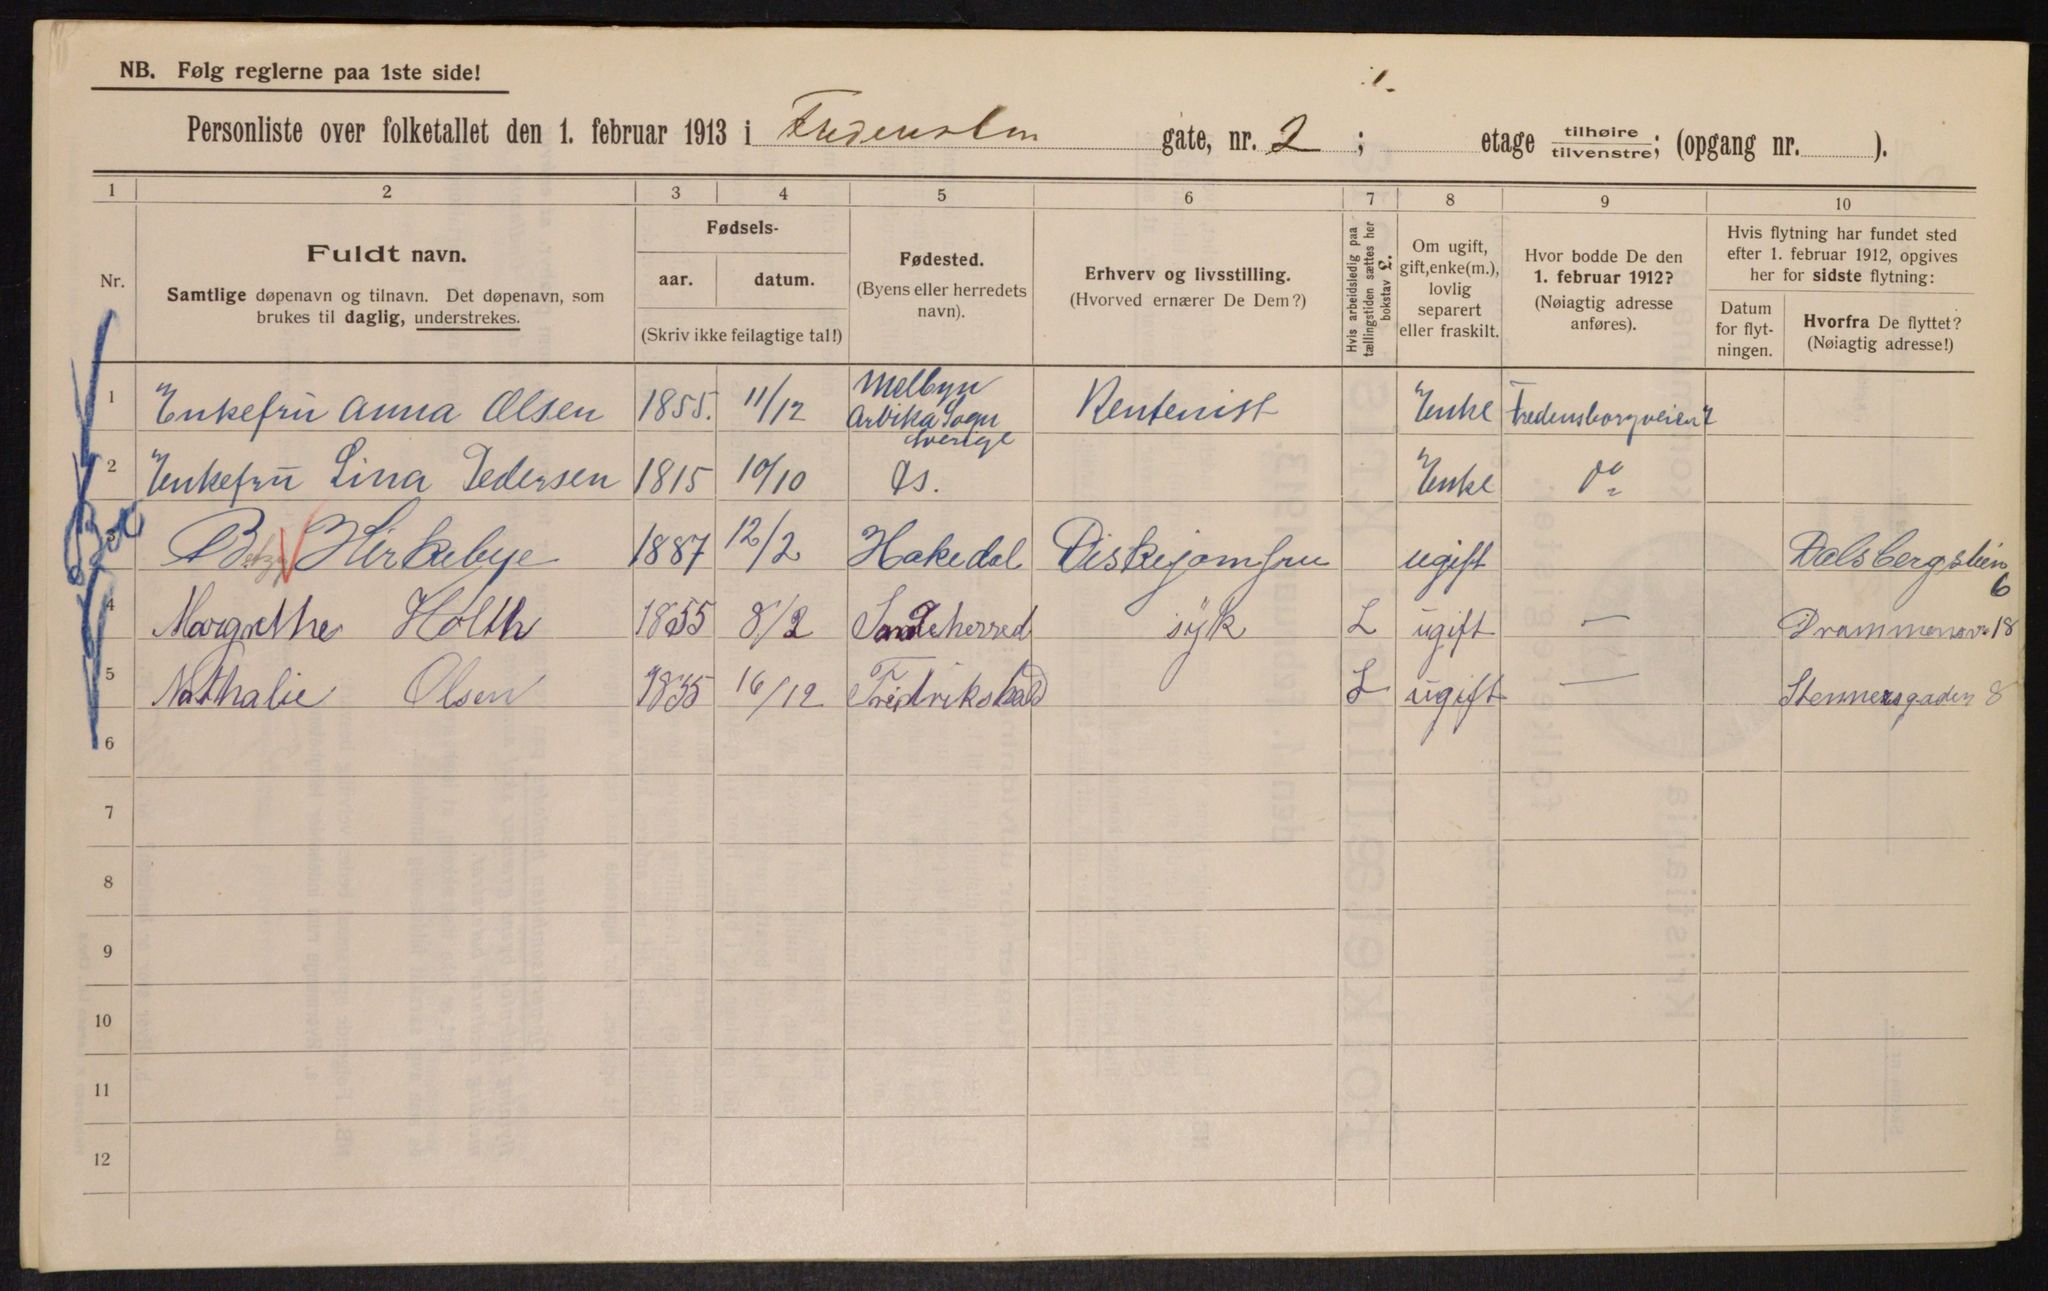 NB. Følg reglerne paa 1ste side!
Personliste over folketallet den 1. februar 1913 i gate, nr. 2 ; etage tilhøire tilvenstre; (opgang nr. ).
1 2 3 4 5 6 7 8 9 10
Nr.
Fuldt navn.
Samtlige døpenavn og tilnavn. Det døpenavn, som
brukes til daglig, understrekes.
Fødsels-
aar. datum.
(Skriv ikke feilagtige tal!)
Fødested.
(Byens eller herredets
navn).
Erhverv og livsstilling.
(Hvorved ernærer De Dem?)
Hvis arbeidsledig paa
tællingstiden sættes her
bokstav L.
Om ugift,
gift, enke(m.),
lovlig
separert
eller fraskilt.
Hvor bodde De den
1. februar 1912?
(Nøiagtig adresse
anføres).
Hvis flytning har fundet sted
efter 1. februar 1912, opgives
her for sidste flytning:
Datum
for flyt-
ningen.
Hvorfra De flyttet?
(Nøiagtig adresse!)
1 Enkefru Anna Olsen 1855. 11/12 Melbyn Arvika Sogn Sverige Rentenist Enke Fredensborgveien 2
2 Enkefru Lina Pedersen 1815 10/10 Ås. Enke do
3 Kirkebye 1887 12/2 Hakedal Diskejomfru ugift Dalsbergstien 6
4 Margrethe Holth 1855 8/2 Sandeherred syk L ugift — Drammensv. 18
5 Nathalie Olsen 1855 16/12 Fredrikshald L ugift — Stenersgaden 8
6
7
8
9
10
11
12